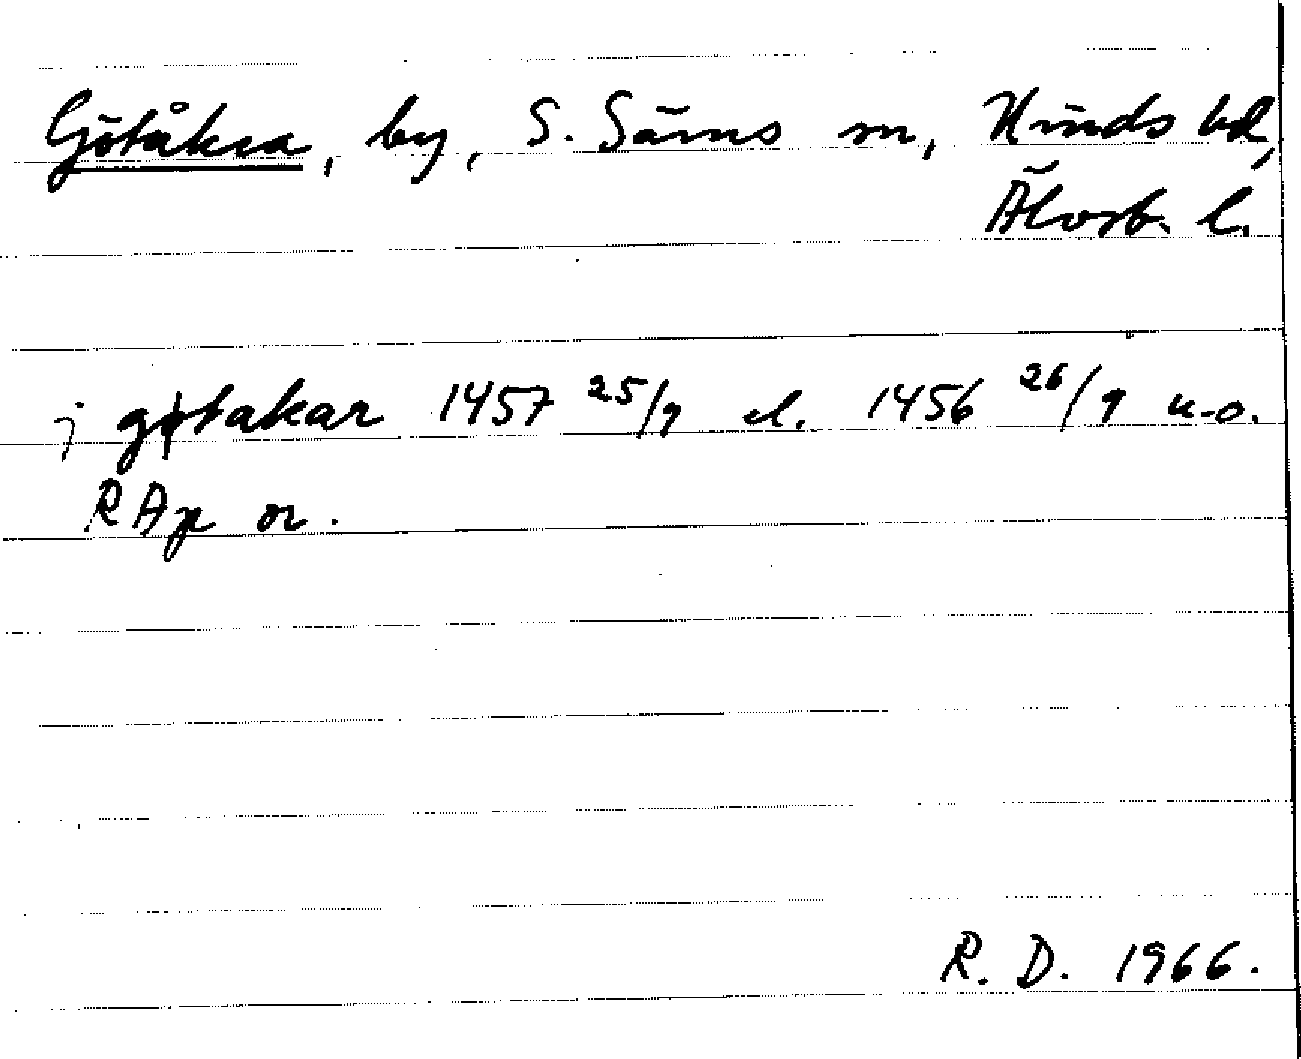 Götåkra, by, S. Säms sn, Kinds hd,
Älvsb. l.
j gøtakar 1457 25/9 el. 1456 26/9 u.o.
RAp or.
R. D. 1966.